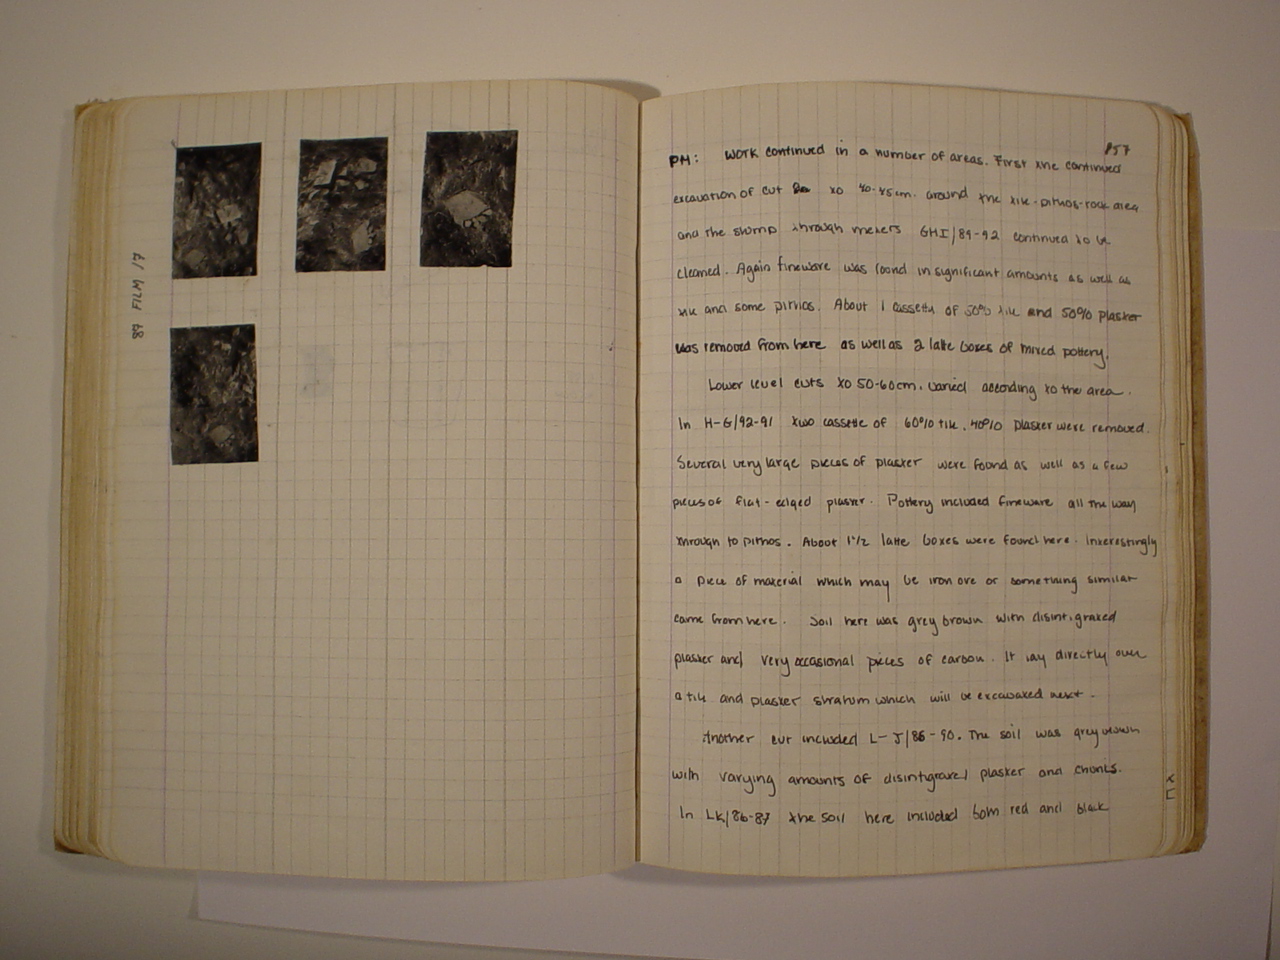 89 FILM 17
P57
PM: Work continued in a number of areas. First the continued
excavation of cut to 40-45cm. around the tile-pithos-rock area
and the slump through meters GHI/89-92 continued to be
cleaned. Again fineware was found in significant amounts as well as
tile and some pithos. About 1 cassetta of 50% tile and 50% plaster
was removed from here as well as 2 latte boxes of mixed pottery.
Lower level cuts to 50-60cm. varied according to the area.
In H-G/92-91 two cassette of 60% tile, 40% plaster were removed.
Several very large pieces of plaster were found as well as a few
pieces of flat-edged plaster. Pottery included fineware all the way
through to pithos. About 1 1/2 latte boxes were found here. Interestingly
a piece of material which may be iron ore or something similar
came from here. Soil here was grey brown with disintigrated
plaster and very occasional pieces of carbon. It lay directly over
a tile and plaster stratum which will be excavated next.
Another cut included L-J/86-90. The soil was grey brown
with varying amounts of disintigrated plaster and chunks.
In LK/86-87 the soil here included both red and black